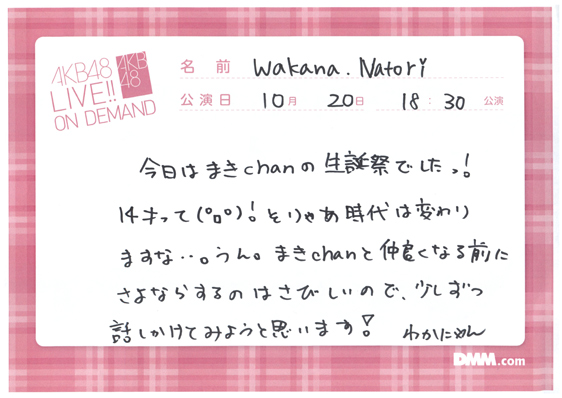 AKB48
LIVE!!
ON DEMAND
AKB
48
名前 Wakana.Natori
公演日 10月 20日 18:30 公演
今日はまきchanの生誕祭でしたっ!
14才って(°□°)!そりゃあ時代は変わり
ますな・・。うん。まきchanと仲良くなる前に
さよならするのはさびしいので、少しずつ
話しかけてみようと思います! わかにゃん
DMM.com